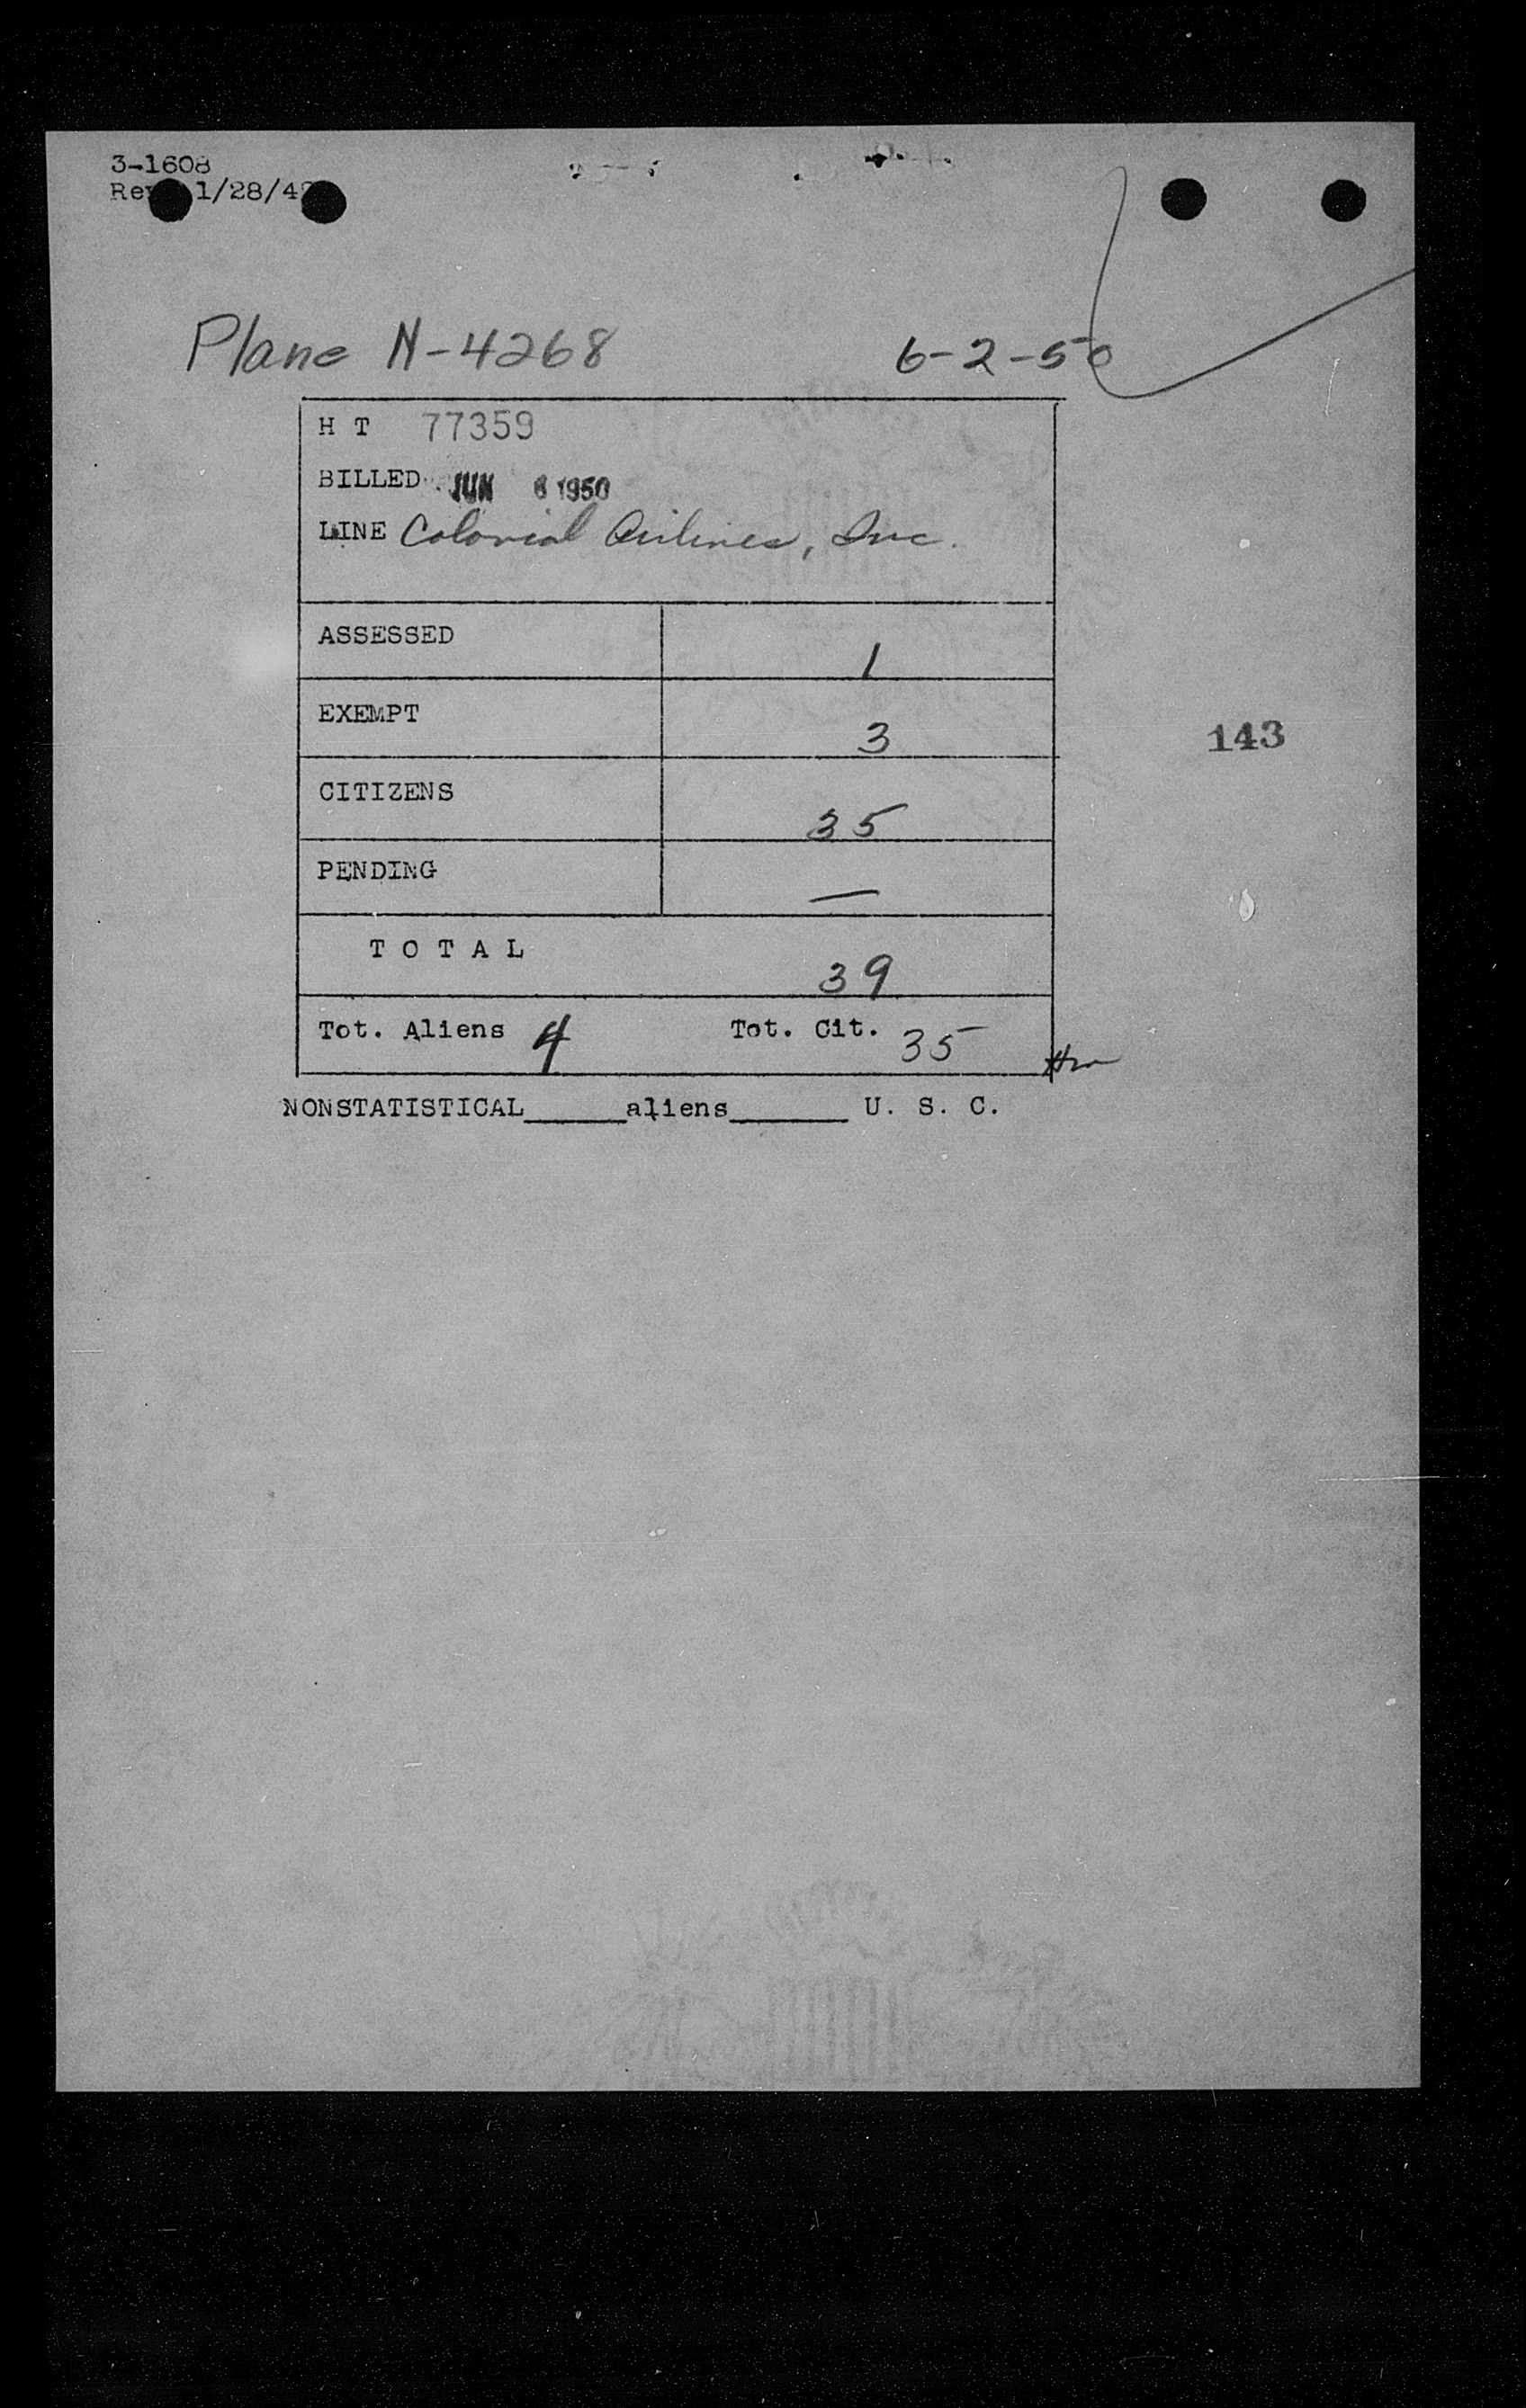 3-1608
1/28/4
Plane N-4268 6-2-50
H T 77359
BILLED JUN 6 1950
LINE Colonial Airlines, Inc.
ASSESSED 1
EXEMPT 3
143
CITIZENS 35
PENDING —
T O T A L 39
Tot. Aliens 4 Tot. Cit. 35
NONSTATISTICAL______aliens_______ U. S. C.